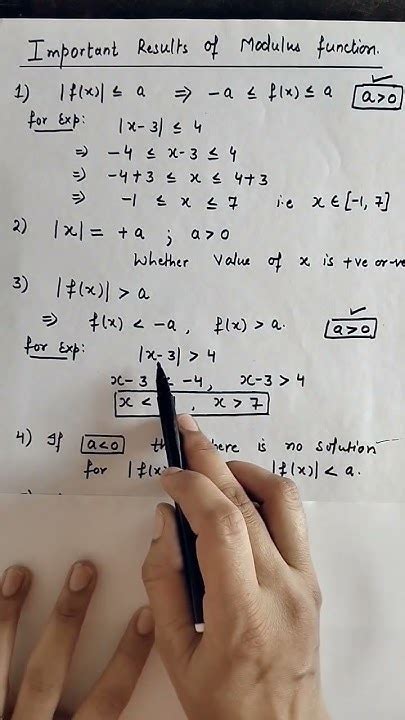 Important Results of Modulus function.
1) |f(x)| ≤ a ⇒ -a ≤ f(x) ≤ a a>0
for Exp: |x-3| ≤ 4
⇒ -4 ≤ x-3 ≤ 4
⇒ -4+3 ≤ x ≤ 4+3
⇒ -1 ≤ x ≤ 7 i.e x ∈ [-1, 7]
2) |x| = +a ; a>0
Whether value of x is +ve or -ve
3) |f(x)| > a
⇒ f(x) < -a, f(x) > a. a>0
for Exp: |x-3| > 4
x-3 < -4, x-3 > 4
x < , x > 7
4) If a<0 there is no solution
for |f(x) |f(x)| < a.